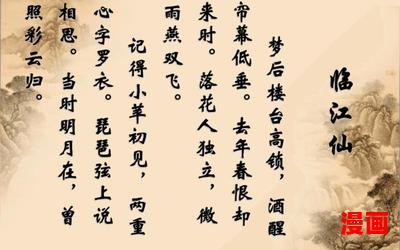 临江仙
梦后楼台高锁，酒醒
帘幕低垂。去年春恨却
来时。落花人独立，微
雨燕双飞。
记得小苹初见，两重
心字罗衣。琵琶弦上说
相思。当时明月在，曾
照彩云归。
漫画